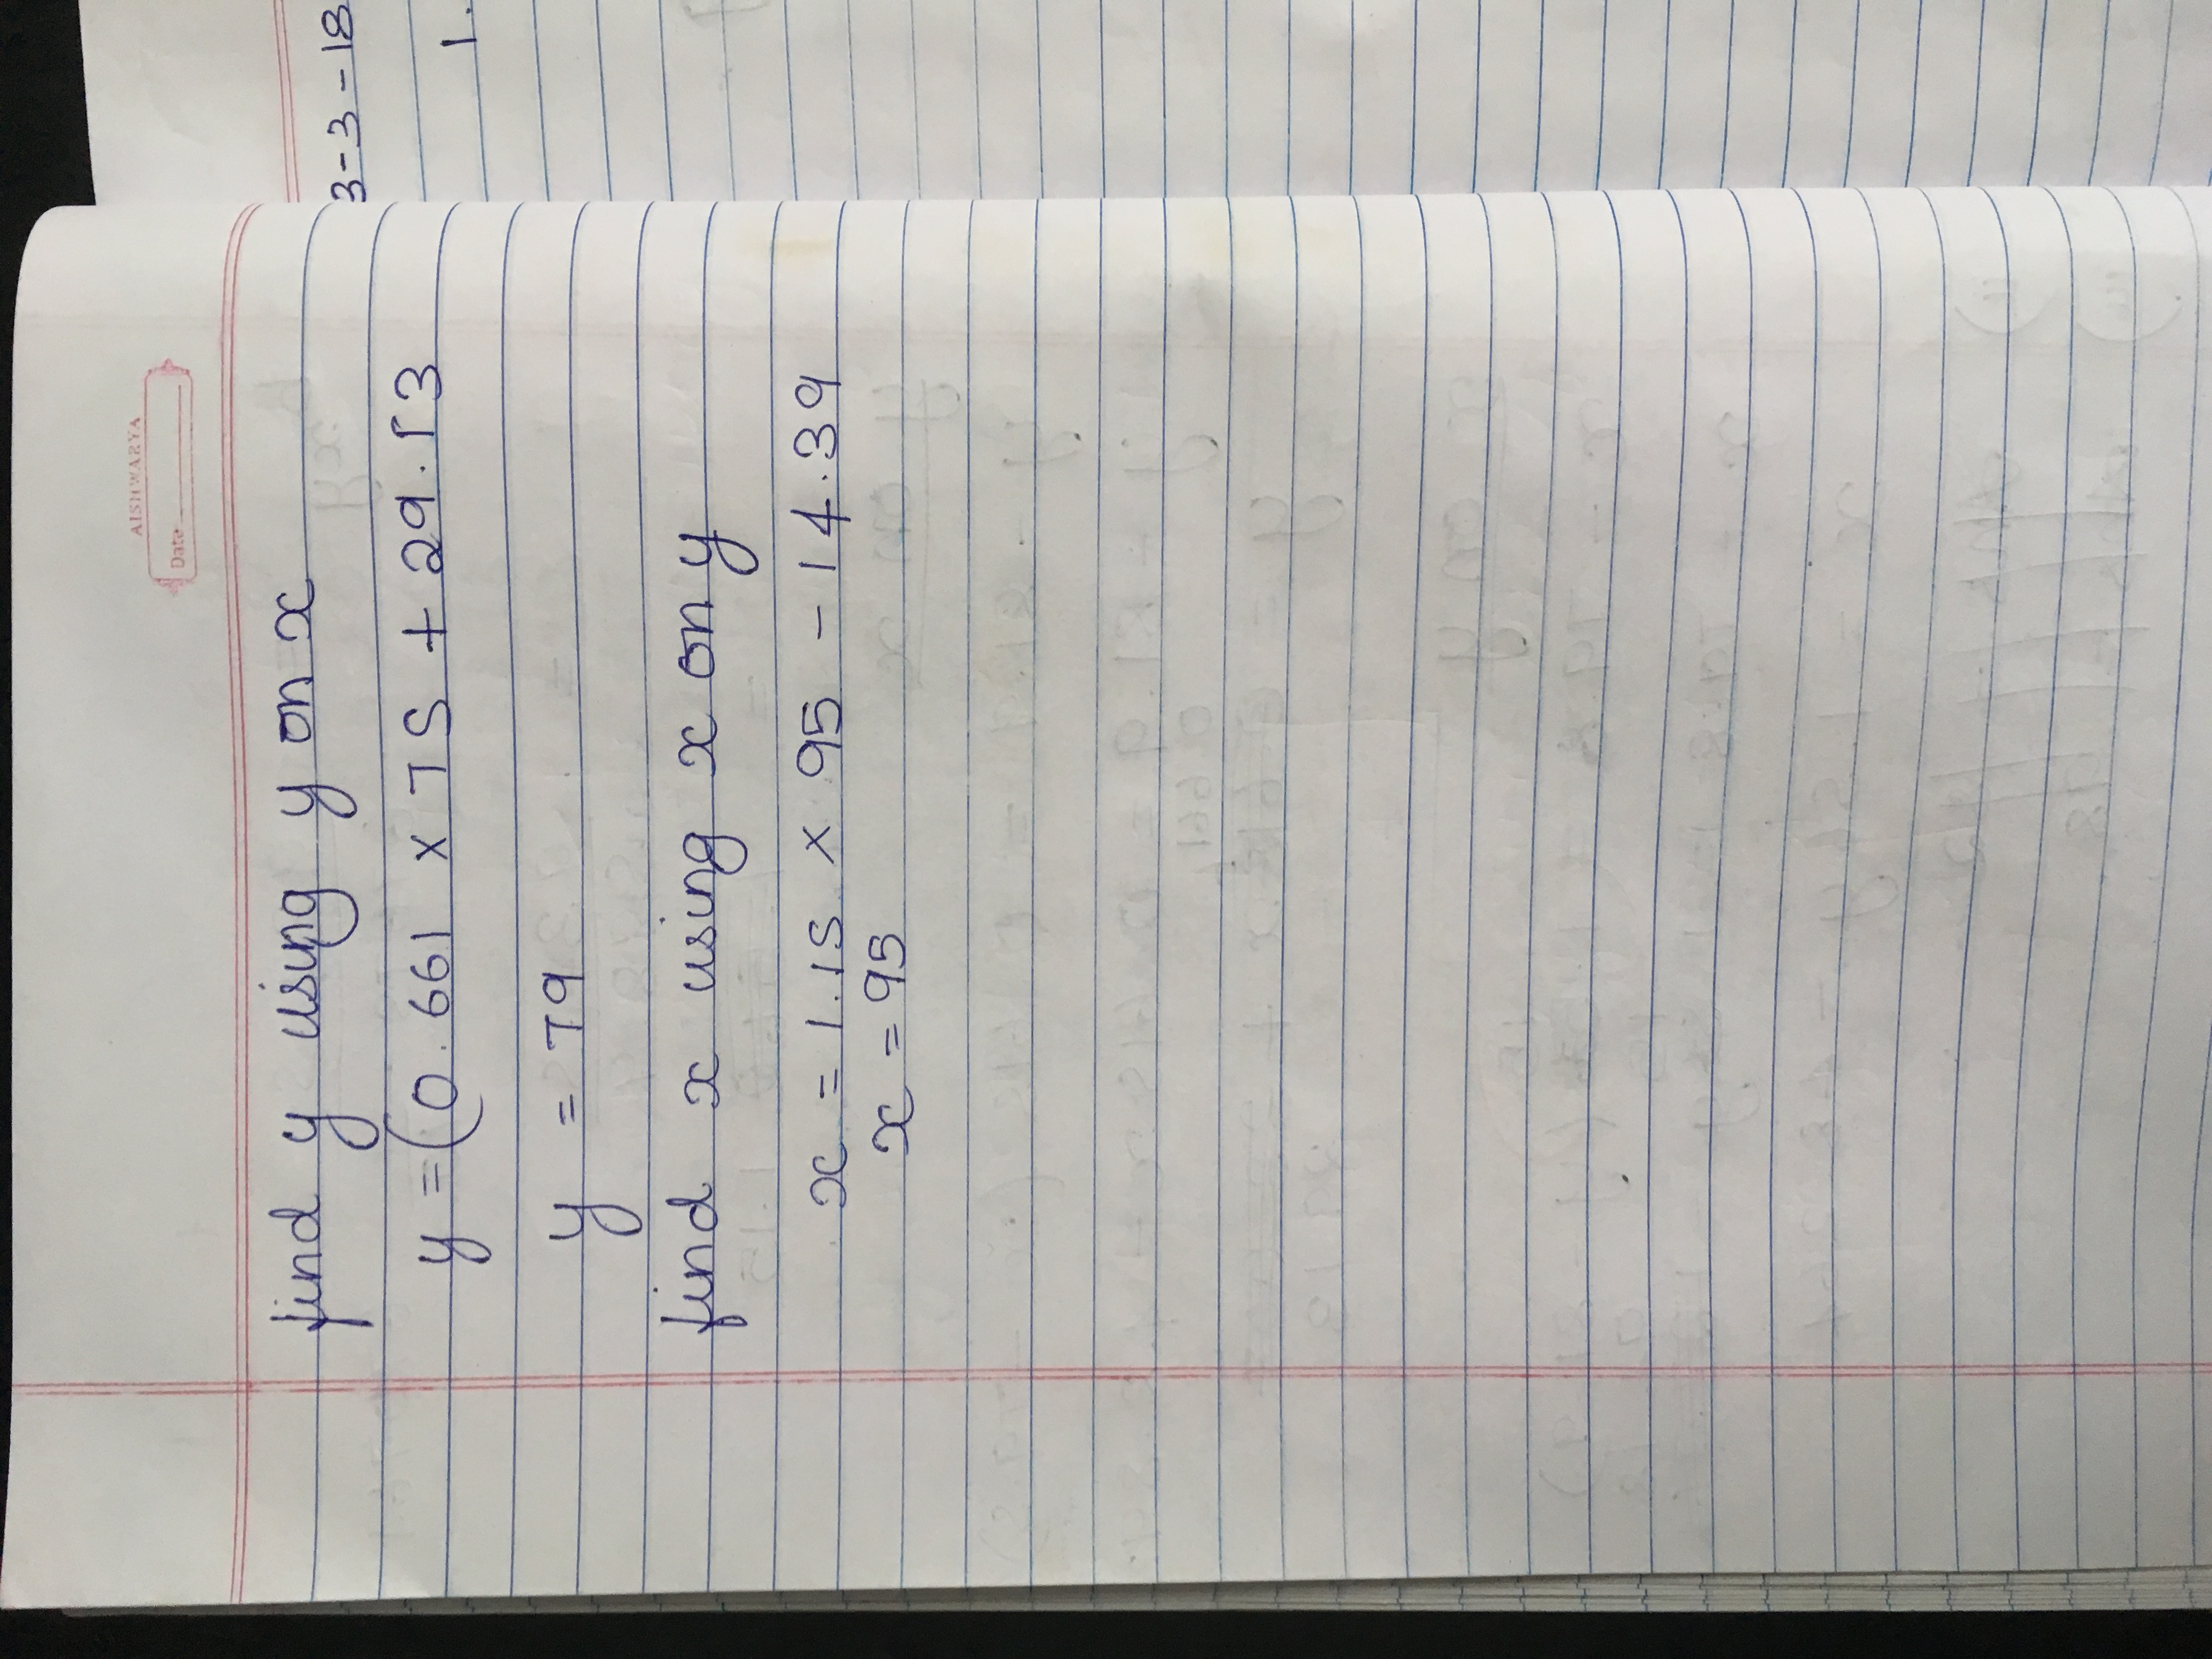 AISHWARYA
Date
find y using y on x
y = (0.661 x 75 + 29.13
y = 79
find x using x on y
x = 1.15 x 95 - 14.39
x = 95
3-3-18
1.